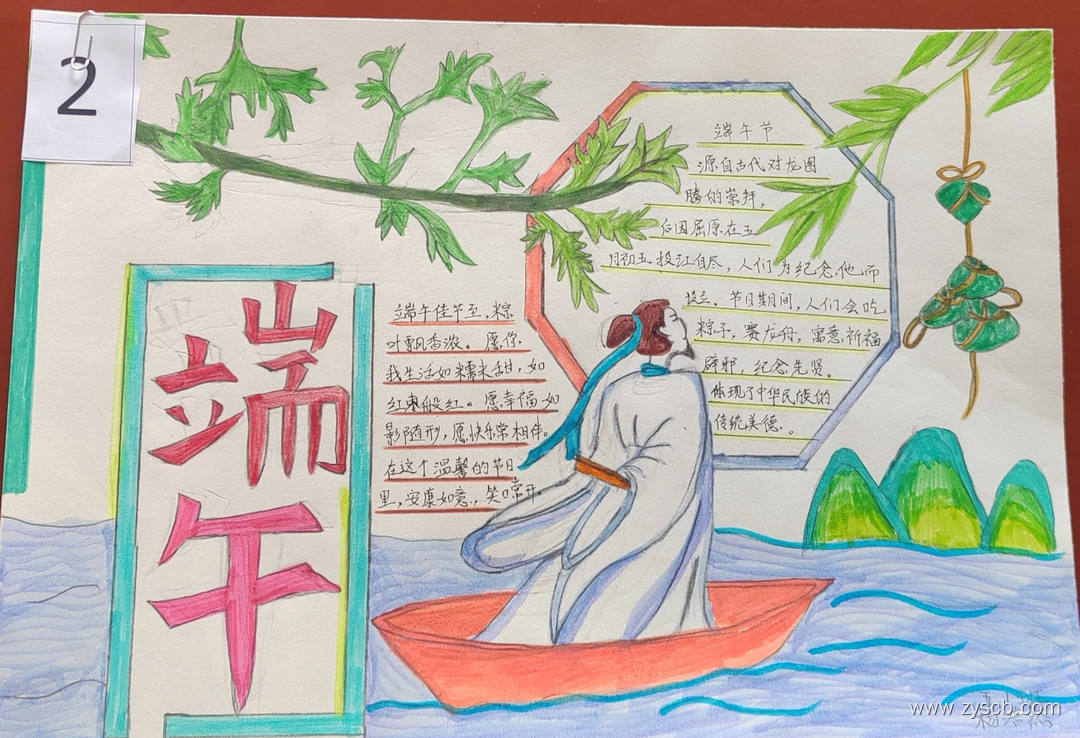 2
端午
端午佳节至，粽
叶飘香浓。愿你
我生活如糯米甜，如
红枣般红。愿幸福如
影随形，愿快乐常相伴。
在这个温馨的节日
里，安康如意，笑口常开。
端午节
源自古代对龙图
腾的崇拜，
后因屈原在五
月初五投江自尽，人们为纪念他而
设立。节日期间，人们会吃
粽子，赛龙舟，寓意祈福
辟邪，纪念先贤。
体现了中华民族的
传统美德。
www.zyscb.com